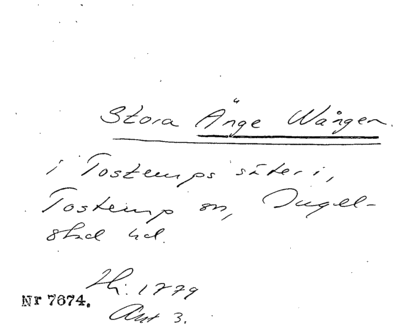 Stora Änge Wången.
i Tostemps säteri,
Tostemp sn, Ingel-
stad hd.
Hi. 1779
Akt 3.
Nr 7674.